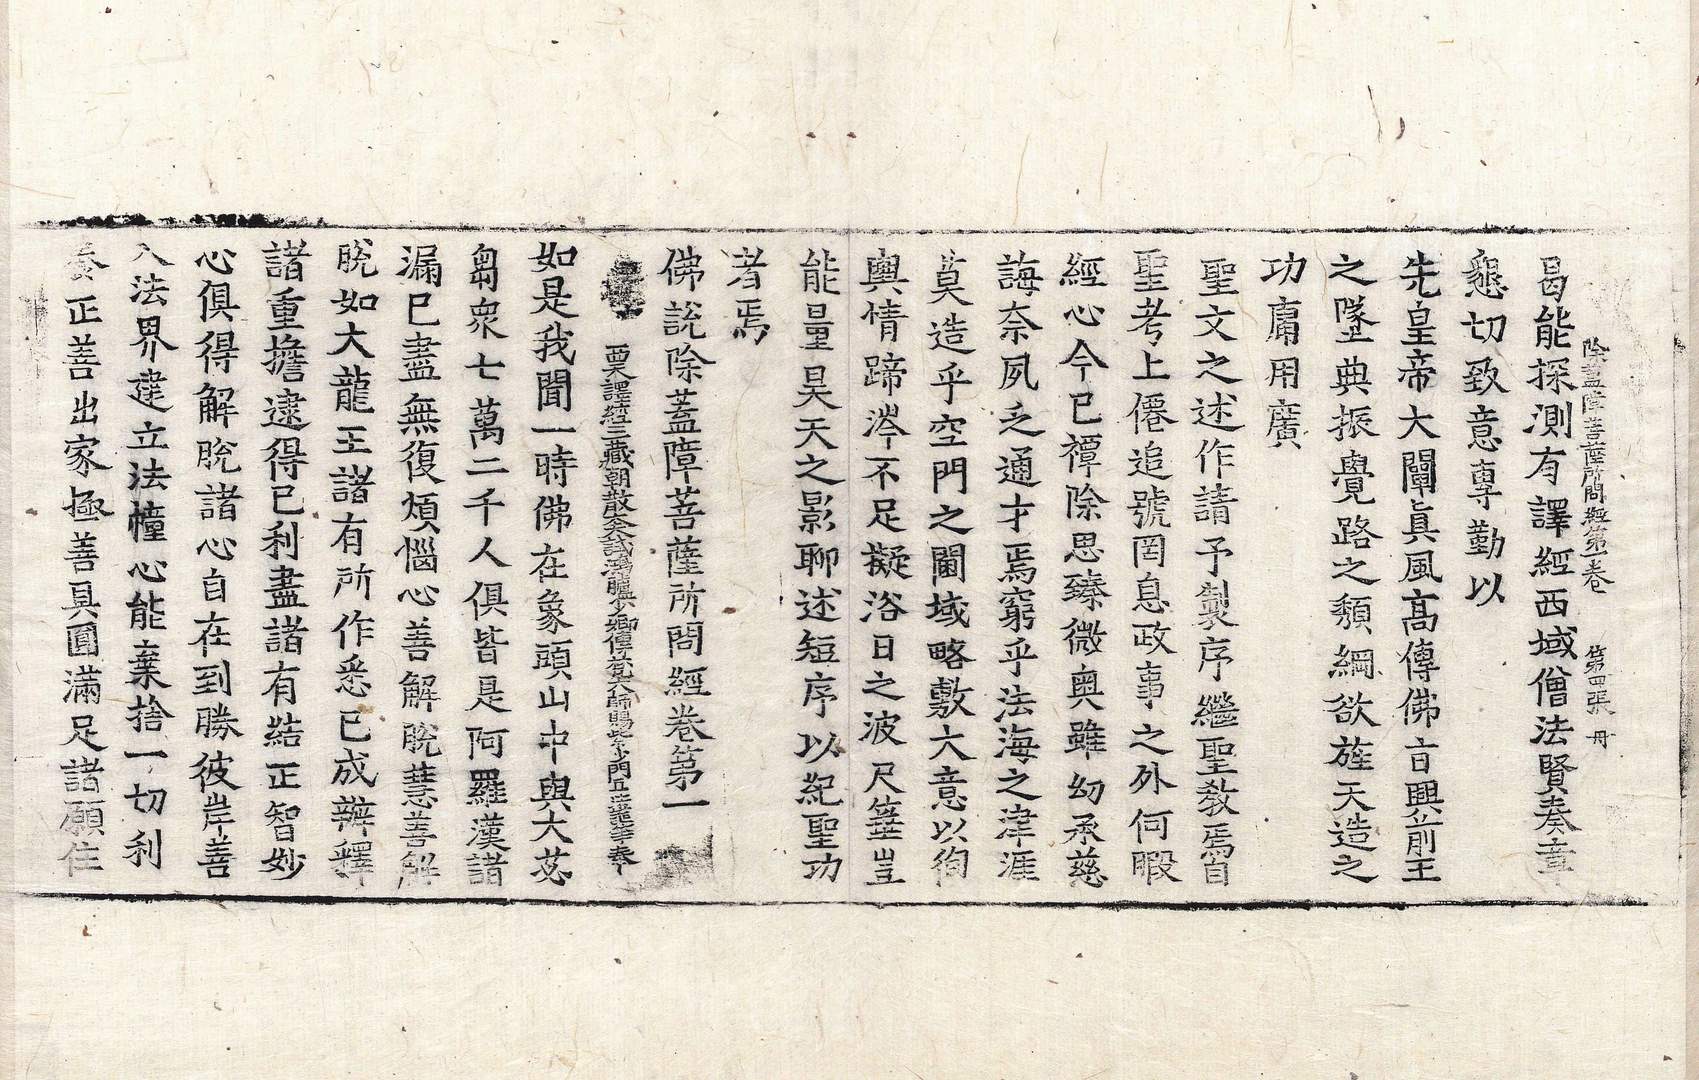 除蓋障菩薩所問經第一卷 第四張 冊
曷能探測有譯經西域僧法賢奏章
懇切致意專勤以
先皇帝大闡眞風高傳佛旨興前王
之墜典振覺路之頹綱欲旌天造之
功庸用廣
聖文之述作請予製序繼聖教焉自
聖考上僊追號罔息政事之外何暇
經心今已禫除思臻微奧雖幼承慈
誨奈夙乏通才焉窮乎法海之津涯
莫造乎空門之閫域略敷大意以徇
輿情蹄涔不足擬浴日之波尺箠豈
能量昊天之影聊述短序以紀聖功
者焉
佛說除蓋障菩薩所問經卷第一
譯經三藏朝散大夫試鴻臚少卿傳梵大師賜紫沙門臣法護等奉
如是我聞一時佛在象頭山中與大苾
芻衆七萬二千人俱皆是阿羅漢諸
漏已盡無復煩惱心善解脫慧善解
脫如大龍王諸有所作悉已成辦釋
諸重擔逮得己利盡諸有結正智妙
心俱得解脫諸心自在到勝彼岸善
入法界建立法幢心能棄捨一切利
養正善出家極善具圓滿足諸願住